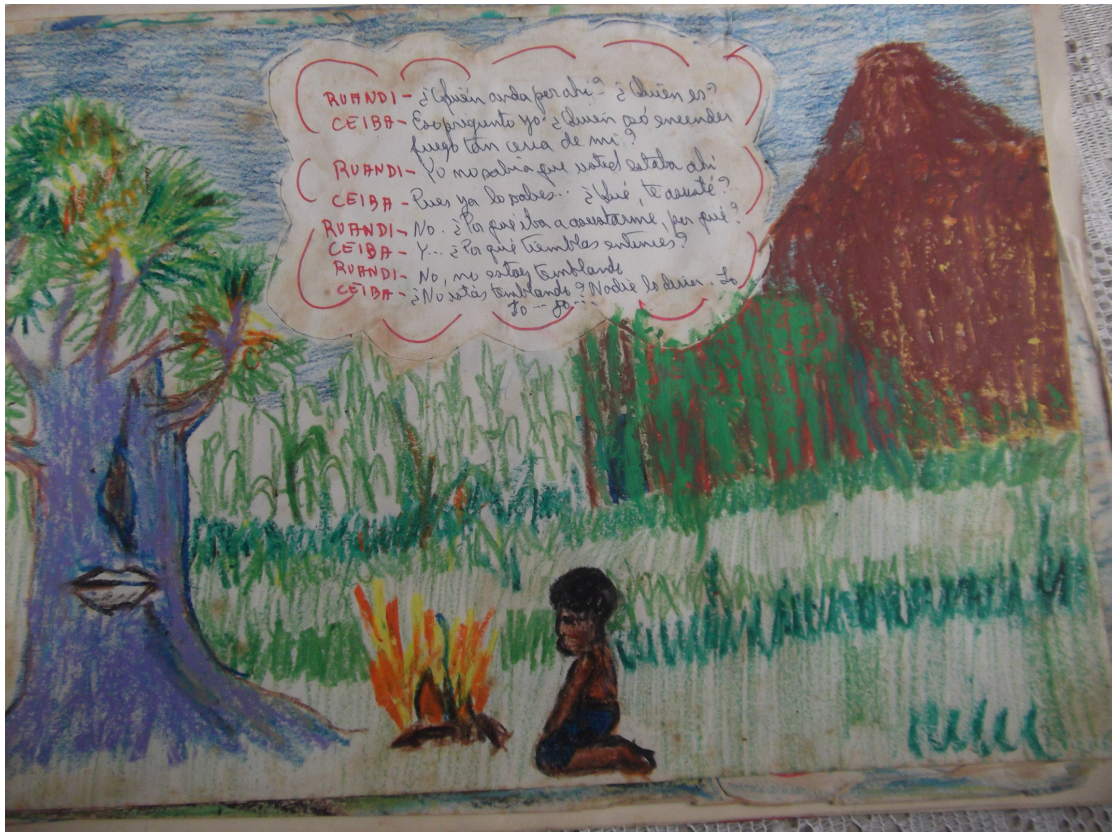 RUANDI- ¿Quién anda por ahi? ¿Quién es?
CEIBA- Eso pregunto yo ¿Quién osó encender
fuego tan cerca de mi?
RUANDI- Yo no sabia que usted estaba ahi
CEIBA- Pues ya lo sabes... ¿Qué, te asusté?
RUANDI- No. ¿Por qué iba a asustarme, por qué?
CEIBA- Y... ¿Por qué tiemblas entonces?
RUANDI- No, no estoy temblando
CEIBA- ¿No estás temblando? Nadie lo diria. Jo
Jo -- Jo...